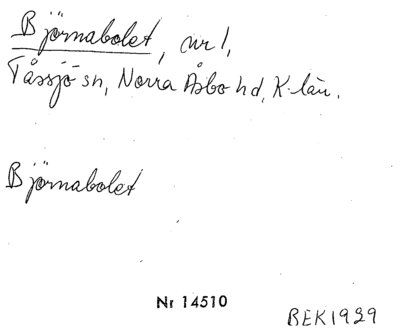 Björnabolet, nr 1,
Tåssjö sn, Norra Åsbo hd, K-län.
Björnabolet
Nr 14510
BEK1929